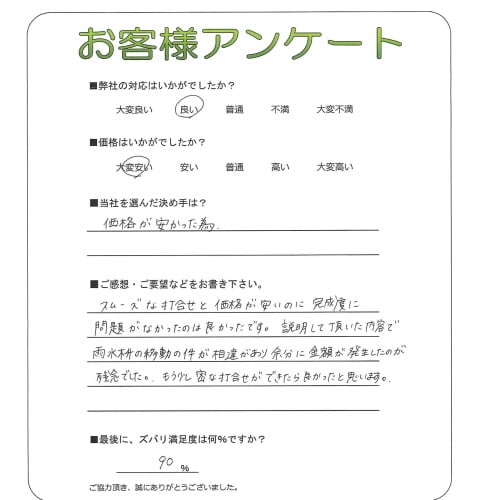 お客様アンケート
■弊社の対応はいかがでしたか？
大変良い 良い 普通 不満 大変不満
■価格はいかがでしたか？
大変安い 安い 普通 高い 大変高い
■当社を選んだ決め手は？
価格が安かった為。
■ご感想・ご要望などをお書き下さい。
スムーズな打合せと価格が安いのに完成度に
問題がなかったのは良かったです。説明して頂いた内容で
雨水枡の移動の件が相違があり余分に金額が発生したのが
残念でした。もう少し密な打合せができたら良かったと思います。
■最後に、ズバリ満足度は何％ですか？
90 ％
ご協力頂き、誠にありがとうございました。